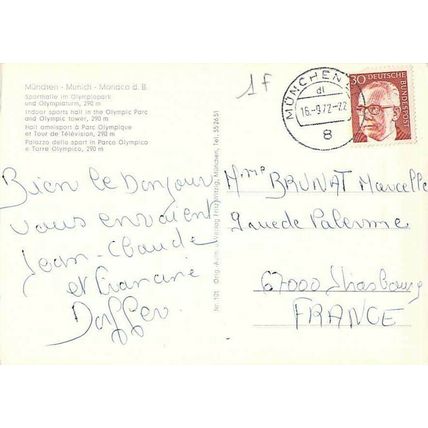 München - Munich - Monaco d. B.
Sporthalle im Olympiapark
und Olympiaturm, 290 m
Indoor sports hall in the Olympic Parc
and Olympic tower, 290 m
Hall omnisport à Parc Olympique
et Tour de Télévision, 290 m
Palazzo dello sport in Parco Olympico
e Torre Olympico, 290 m
1F
MÜNCHEN
dl
16.-9.72-22
8
30 DEUTSCHE BUNDESPOST
Bien le bonjour
vous envoient
Jean-Claude
et Francine
Nr. 101 Orig. Aufn. Verlag München, Tel. 552651
Mme BRUNAT Marcelle
9 rue de Palerme
67000 Strasbourg
FRANCE